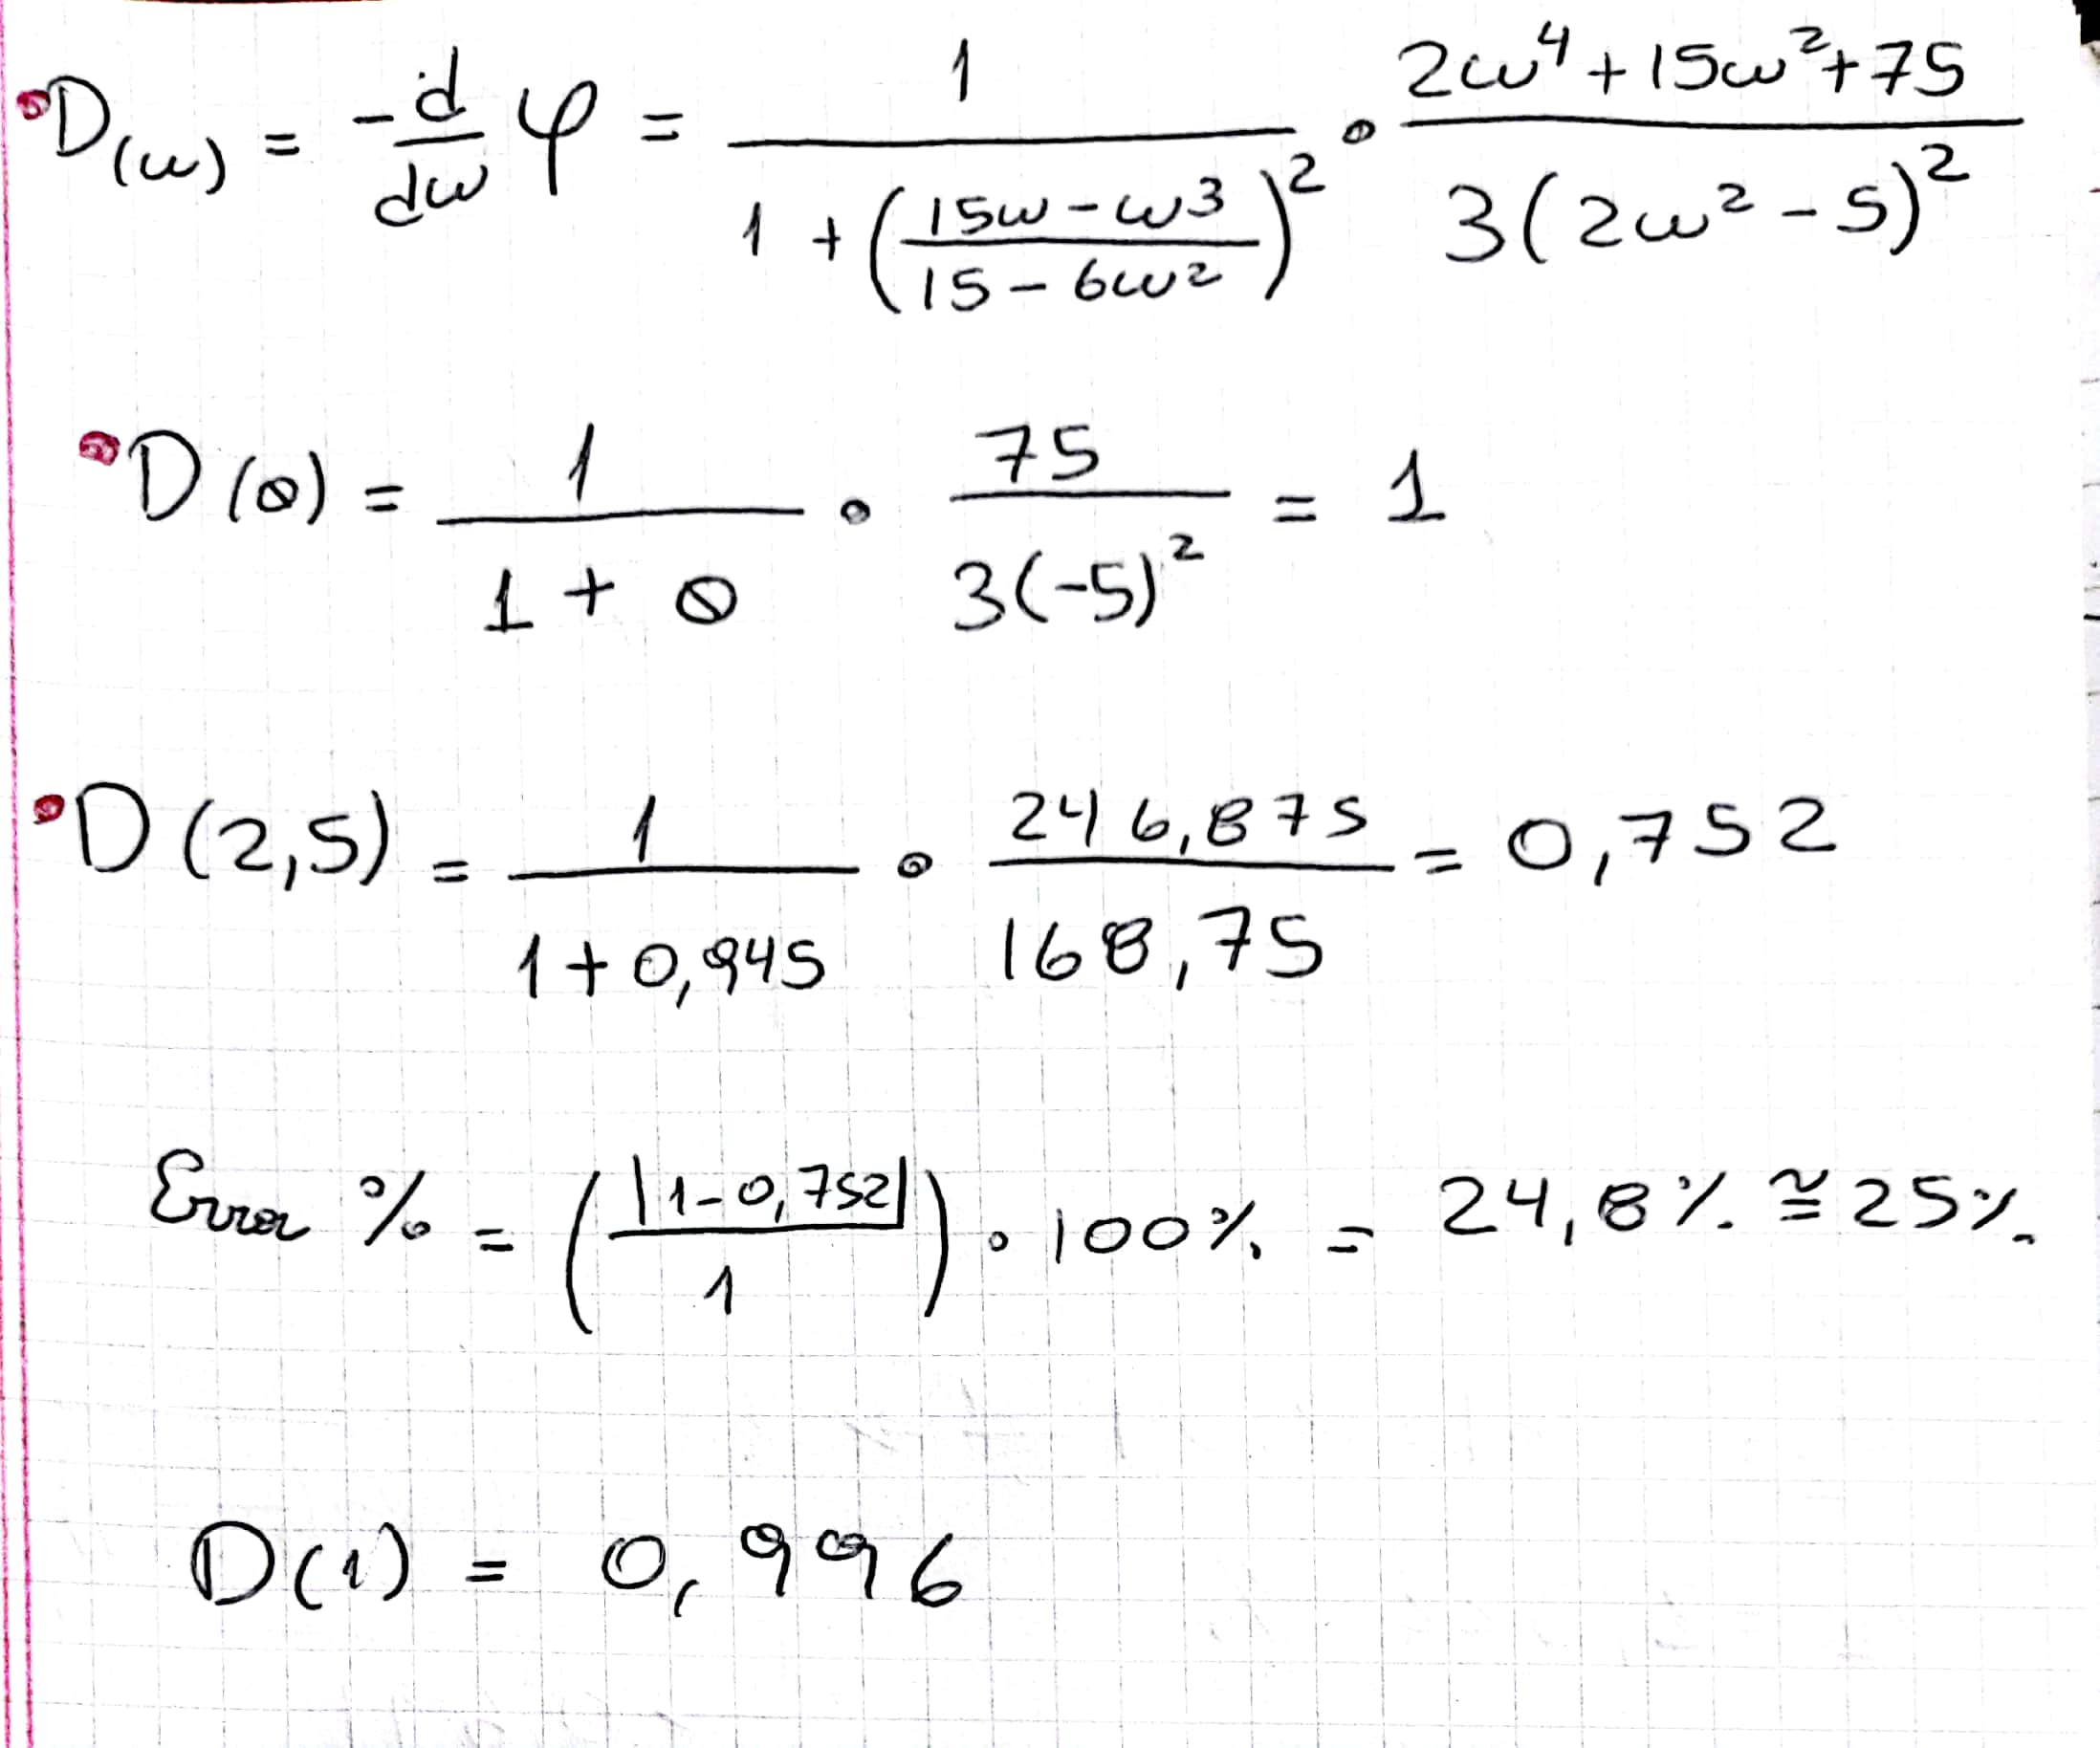 D(ω) = -d/dω φ = 1/(1 + ((15ω - ω³)/(15 - 6ω²))²) · (2ω⁴ + 15ω² + 75)/(3(2ω² - 5)²)
D(0) = 1/(1 + 0) · 75/(3(-5)²) = 1
D(2,5) = 1/(1 + 0,945) · 246,875/168,75 = 0,752
Error % = (|1 - 0,752|/1) · 100% = 24,8% ≅ 25%
D(1) = 0,996